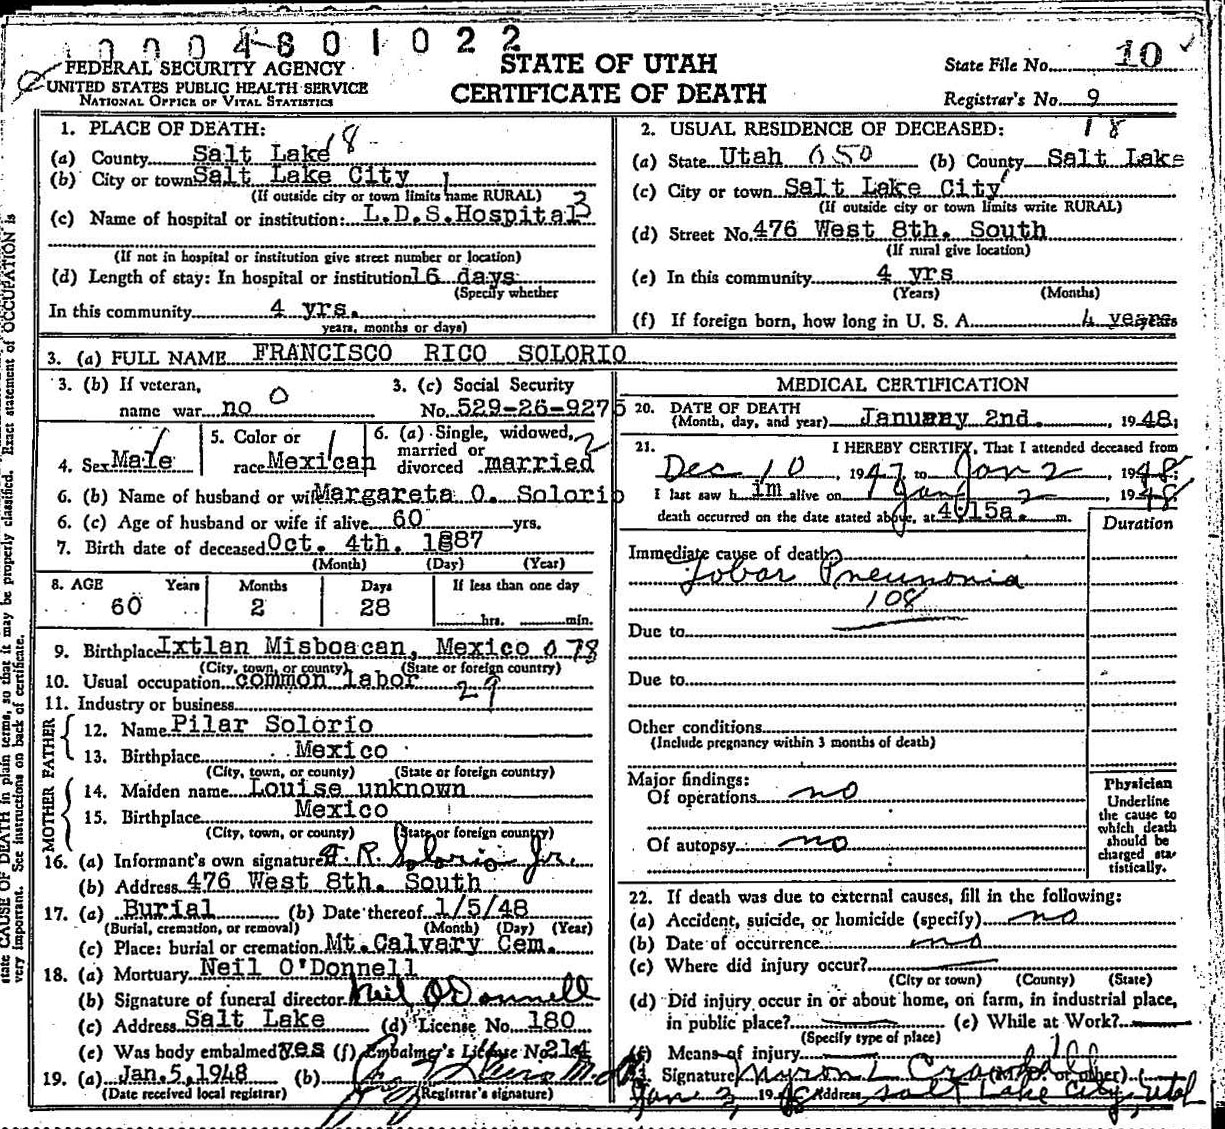 0004801022
FEDERAL SECURITY AGENCY
UNITED STATES PUBLIC HEALTH SERVICE
NATIONAL OFFICE OF VITAL STATISTICS
STATE OF UTAH
CERTIFICATE OF DEATH
State File No. 10
Registrar's No. 9
1. PLACE OF DEATH:
(a) County Salt Lake 18
(b) City or town Salt Lake City 1
(If outside city or town limits name RURAL)
(c) Name of hospital or institution: L.D.S. Hospital 3
(If not in hospital or institution give street number or location)
(d) Length of stay: In hospital or institution 16 days
(Specify whether
In this community 4 yrs.
years, months or days)
2. USUAL RESIDENCE OF DECEASED: 18
(a) State Utah 050 (b) County Salt Lake
(c) City or town Salt Lake City
(If outside city or town limits write RURAL)
(d) Street No. 476 West 8th. South
(If rural give location)
(e) In this community 4 yrs
(Years) (Months)
(f) If foreign born, how long in U. S. A. 4 years
3. (a) FULL NAME FRANCISCO RICO SOLORIO
3. (b) If veteran,
name war no 0
3. (c) Social Security
No. 529-26-9275
4. Sex Male 1
5. Color or
race Mexican 1
6. (a) Single, widowed,
married or
divorced married 2
6. (b) Name of husband or wife Margareta O. Solorio
6. (c) Age of husband or wife if alive 60 yrs.
7. Birth date of deceased Oct. 4th. 1887
(Month) (Day) (Year)
8. AGE Years Months Days If less than one day
60 2 28 hrs. min.
9. Birthplace Ixtlan Misboacan, Mexico 078
(City, town, or county) (State or foreign country)
10. Usual occupation common labor
29
11. Industry or business
FATHER
12. Name Pilar Solorio
13. Birthplace Mexico
(City, town, or county) (State or foreign country)
MOTHER
14. Maiden name Louise unknown
15. Birthplace Mexico
(City, town, or county) (State or foreign country)
16. (a) Informant's own signature F. R. Solorio Jr.
(b) Address 476 West 8th. South
17. (a) Burial (b) Date thereof 1/5/48
(Burial, cremation, or removal) (Month) (Day) (Year)
(c) Place: burial or cremation Mt. Calvary Cem.
18. (a) Mortuary Neil O'Donnell
(b) Signature of funeral director Neil O'Donnell
(c) Address Salt Lake (d) License No. 180
(e) Was body embalmed? yes (f) Embalmer's License No. 214
19. (a) Jan. 5, 1948 (b)
(Date received local registrar) (Registrar's signature)
MEDICAL CERTIFICATION
20. DATE OF DEATH
(Month, day, and year) January 2nd. , 1948;
21. I HEREBY CERTIFY, That I attended deceased from
Dec 10 , 1947 to Jan 2 , 1948;
I last saw him alive on Jan 2 , 1948
death occurred on the date stated above, at 4:15a. m.
Duration
Immediate cause of death
Lobar Pneumonia
108
Due to
Due to
Other conditions
(Include pregnancy within 3 months of death)
Major findings:
Of operations no
Of autopsy no
Physician
Underline
the cause to
which death
should be
charged sta-
tistically.
22. If death was due to external causes, fill in the following:
(a) Accident, suicide, or homicide (specify) no
(b) Date of occurrence no
(c) Where did injury occur?
(City or town) (County) (State)
(d) Did injury occur in or about home, on farm, in industrial place,
in public place? (e) While at Work?
(Specify type of place)
(f) Means of injury
Signature Myron L Crandall other)
Jan 3, 1948 Address Salt Lake City, Utah
state CAUSE OF DEATH in plain terms, so that it may be properly classified. Exact statement of OCCUPATION is
very important. See instructions on back of certificate.